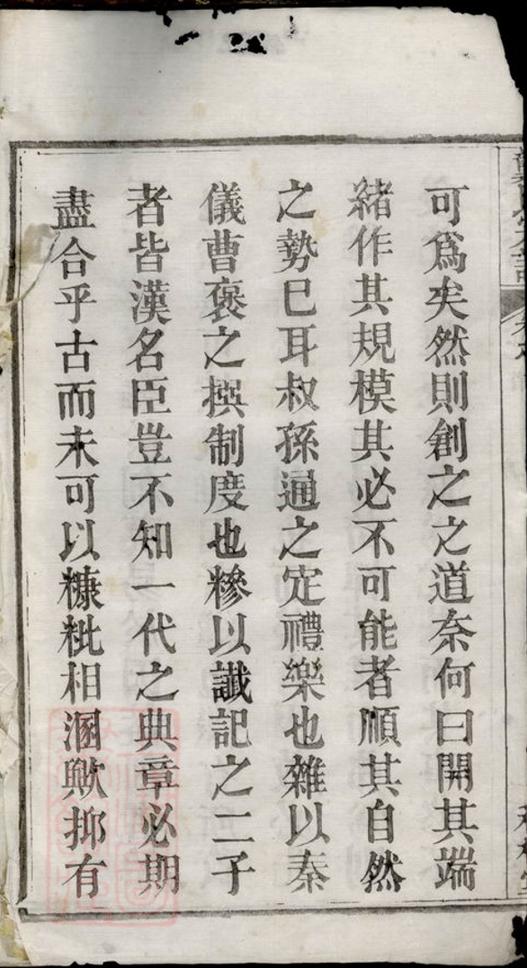 可爲矣然則創之之道奈何曰開其端
緒作其規模其必不可能者順其自然
之勢已耳叔孫通之定禮樂也雜以秦
儀曹褒之撰制度也糝以讖記之二子
者皆漢名臣豈不知一代之典章必期
盡合乎古而未可以糠粃相溷歟抑有